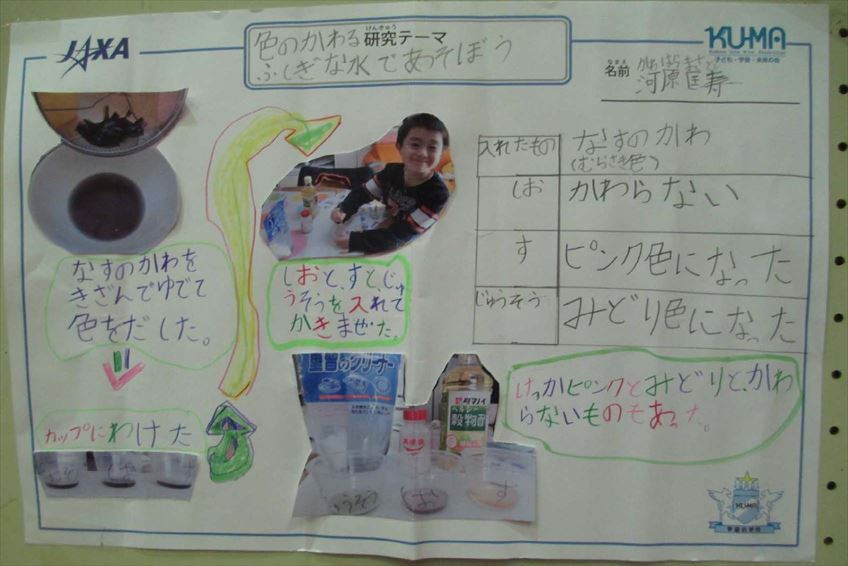 JAXA
けんきゅう
研究テーマ
色のかわる
ふしぎな水であっそぼう
KU-MA
子ども・宇宙・未来の会
なまえ
名前
河原匡寿
なすのかわを
きざんでゆでて
色をだした。
カップにわけた
しおと、すと、じゅ
うそうを入れて
かきまぜた。
入れたもの
なすのかわ
(むらさき色)
しお
かわらない
す
ピンク色になった
じゅうそう
みどり色になった
けっかピンクとみどりと、かわ
らないものもあった。
重曹のクリーナー
タマノイ
ヘルシー
穀物酢
じゅうそう
しお
す
KU-MA
宇宙の学校